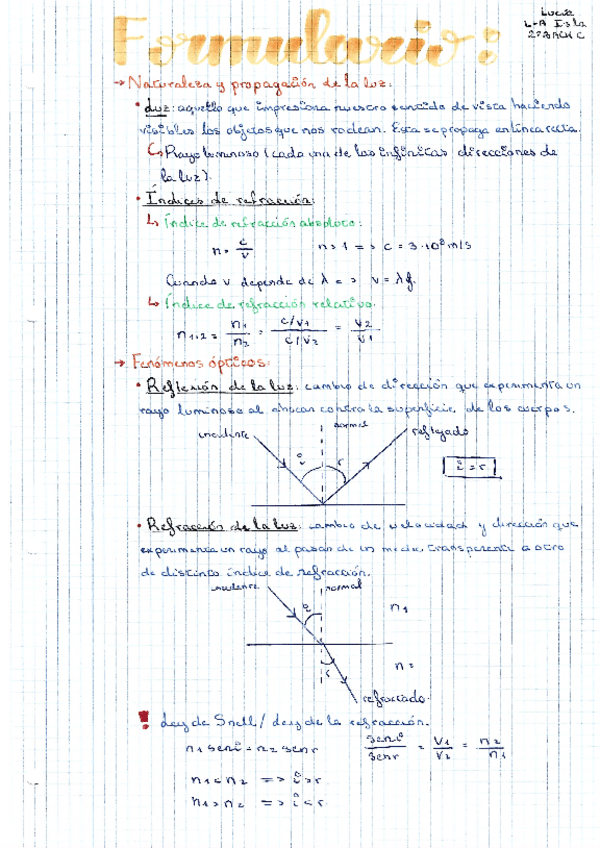 Formulario:
Lucía
2ºBACH C
→ Naturaleza y propagación de la luz:
• Luz: aquello que impresiona nuestro sentido de vista haciendo
visibles los objetos que nos rodean. Esta se propaga en línea recta.
↳ Rayo luminoso (cada una de las infinitas direcciones de
la luz).
• Índices de refracción:
↳ Índice de refracción absoluto:
n = c/v n>1 => c = 3·10⁸ m/s
Cuando v depende de λ => v = λf.
↳ Índice de refracción relativo.
n1,2 = n1/n2 = c/v1 / c/v2 = v2/v1
→ Fenómenos ópticos:
• Reflexión de la luz: cambio de dirección que experimenta un
rayo luminoso al chocar contra la superficie de los cuerpos.
incidente normal reflejado
î r
î = r
• Refracción de la luz: cambio de velocidad y dirección que
experimenta un rayo al pasar de un medio transparente a otro
de distinto índice de refracción.
incidente normal
î n1
r n2
refractado.
! Ley de Snell / Ley de la refracción.
n1 sen î = n2 sen r sen î / sen r = v1/v2 = n2/n1
n1 < n2 => î > r
n1 > n2 => î < r